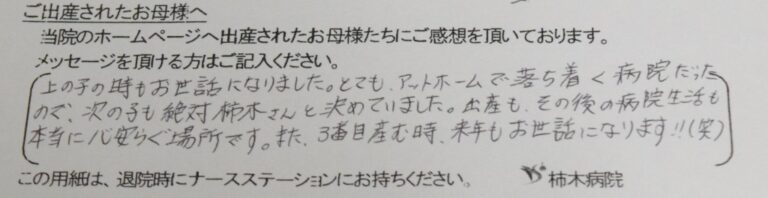 ご出産されたお母様へ
当院のホームページへ出産されたお母様たちにご感想を頂いております。
メッセージを頂ける方はご記入ください。
上の子の時もお世話になりました。とても、アットホームで落ち着く病院だった
ので、次の子も絶対柿木さんと決めていました。出産も、その後の病院生活も
本当に心安らぐ場所です。また、3番目産む時、来年もお世話になります!!(笑)
この用紙は、退院時にナースステーションにお持ちください。 柿木病院